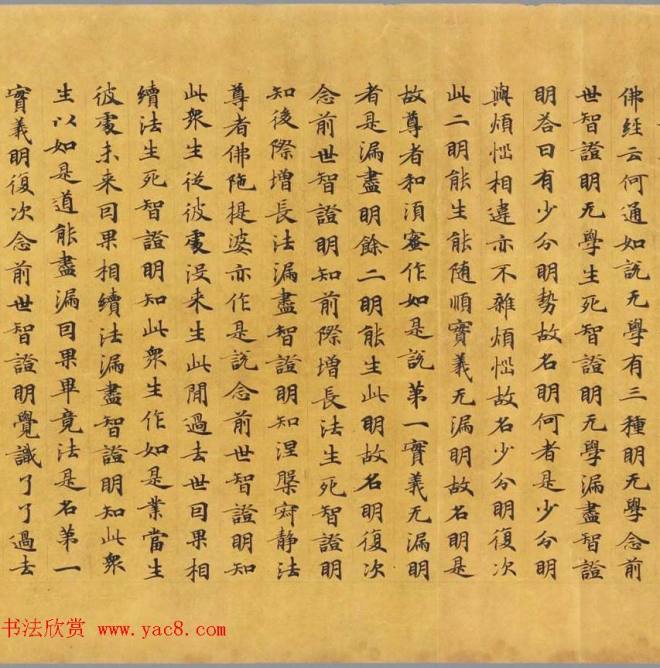 佛經云何通如說无學有三種明无學念前
世智證明无學生死智證明无學漏盡智證
明荅曰有少分明勢故名明何者是少分明
與煩惱相違亦不雜煩惱故名少分明復次
此二明能生能随順實義无漏明故名明是
故尊者和須蜜作如是說第一實義无漏明
者是漏盡明餘二明能生此明故名明復次
念前世智證明知前際增長法生死智證明
知後際增長法漏盡智證明知涅槃寂静法
尊者佛陁提婆亦作是說念前世智證明知
此衆生從彼處没来生此間過去世因果相
續法生死智證明知此衆生作如是業當生
彼處未来因果相續法漏盡智證明知此衆
生以如是道能盡漏因果畢竟法是名第一
實義明復次念前世智證明覺識了了過去
书法欣赏 www.yac8.com